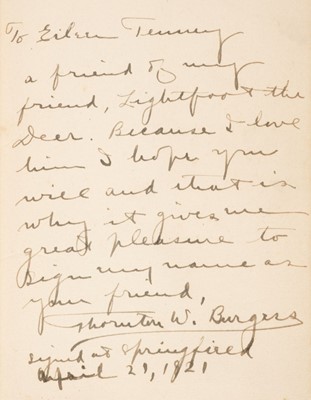 To Eileen Tenney
a friend of my
friend, Lightfoot the
Deer. Because I love
him I hope you
will and that is
why it gives me
great pleasure to
sign my name as
your friend,
Thornton W. Burgess
signed at Springfield
April 21, 1921